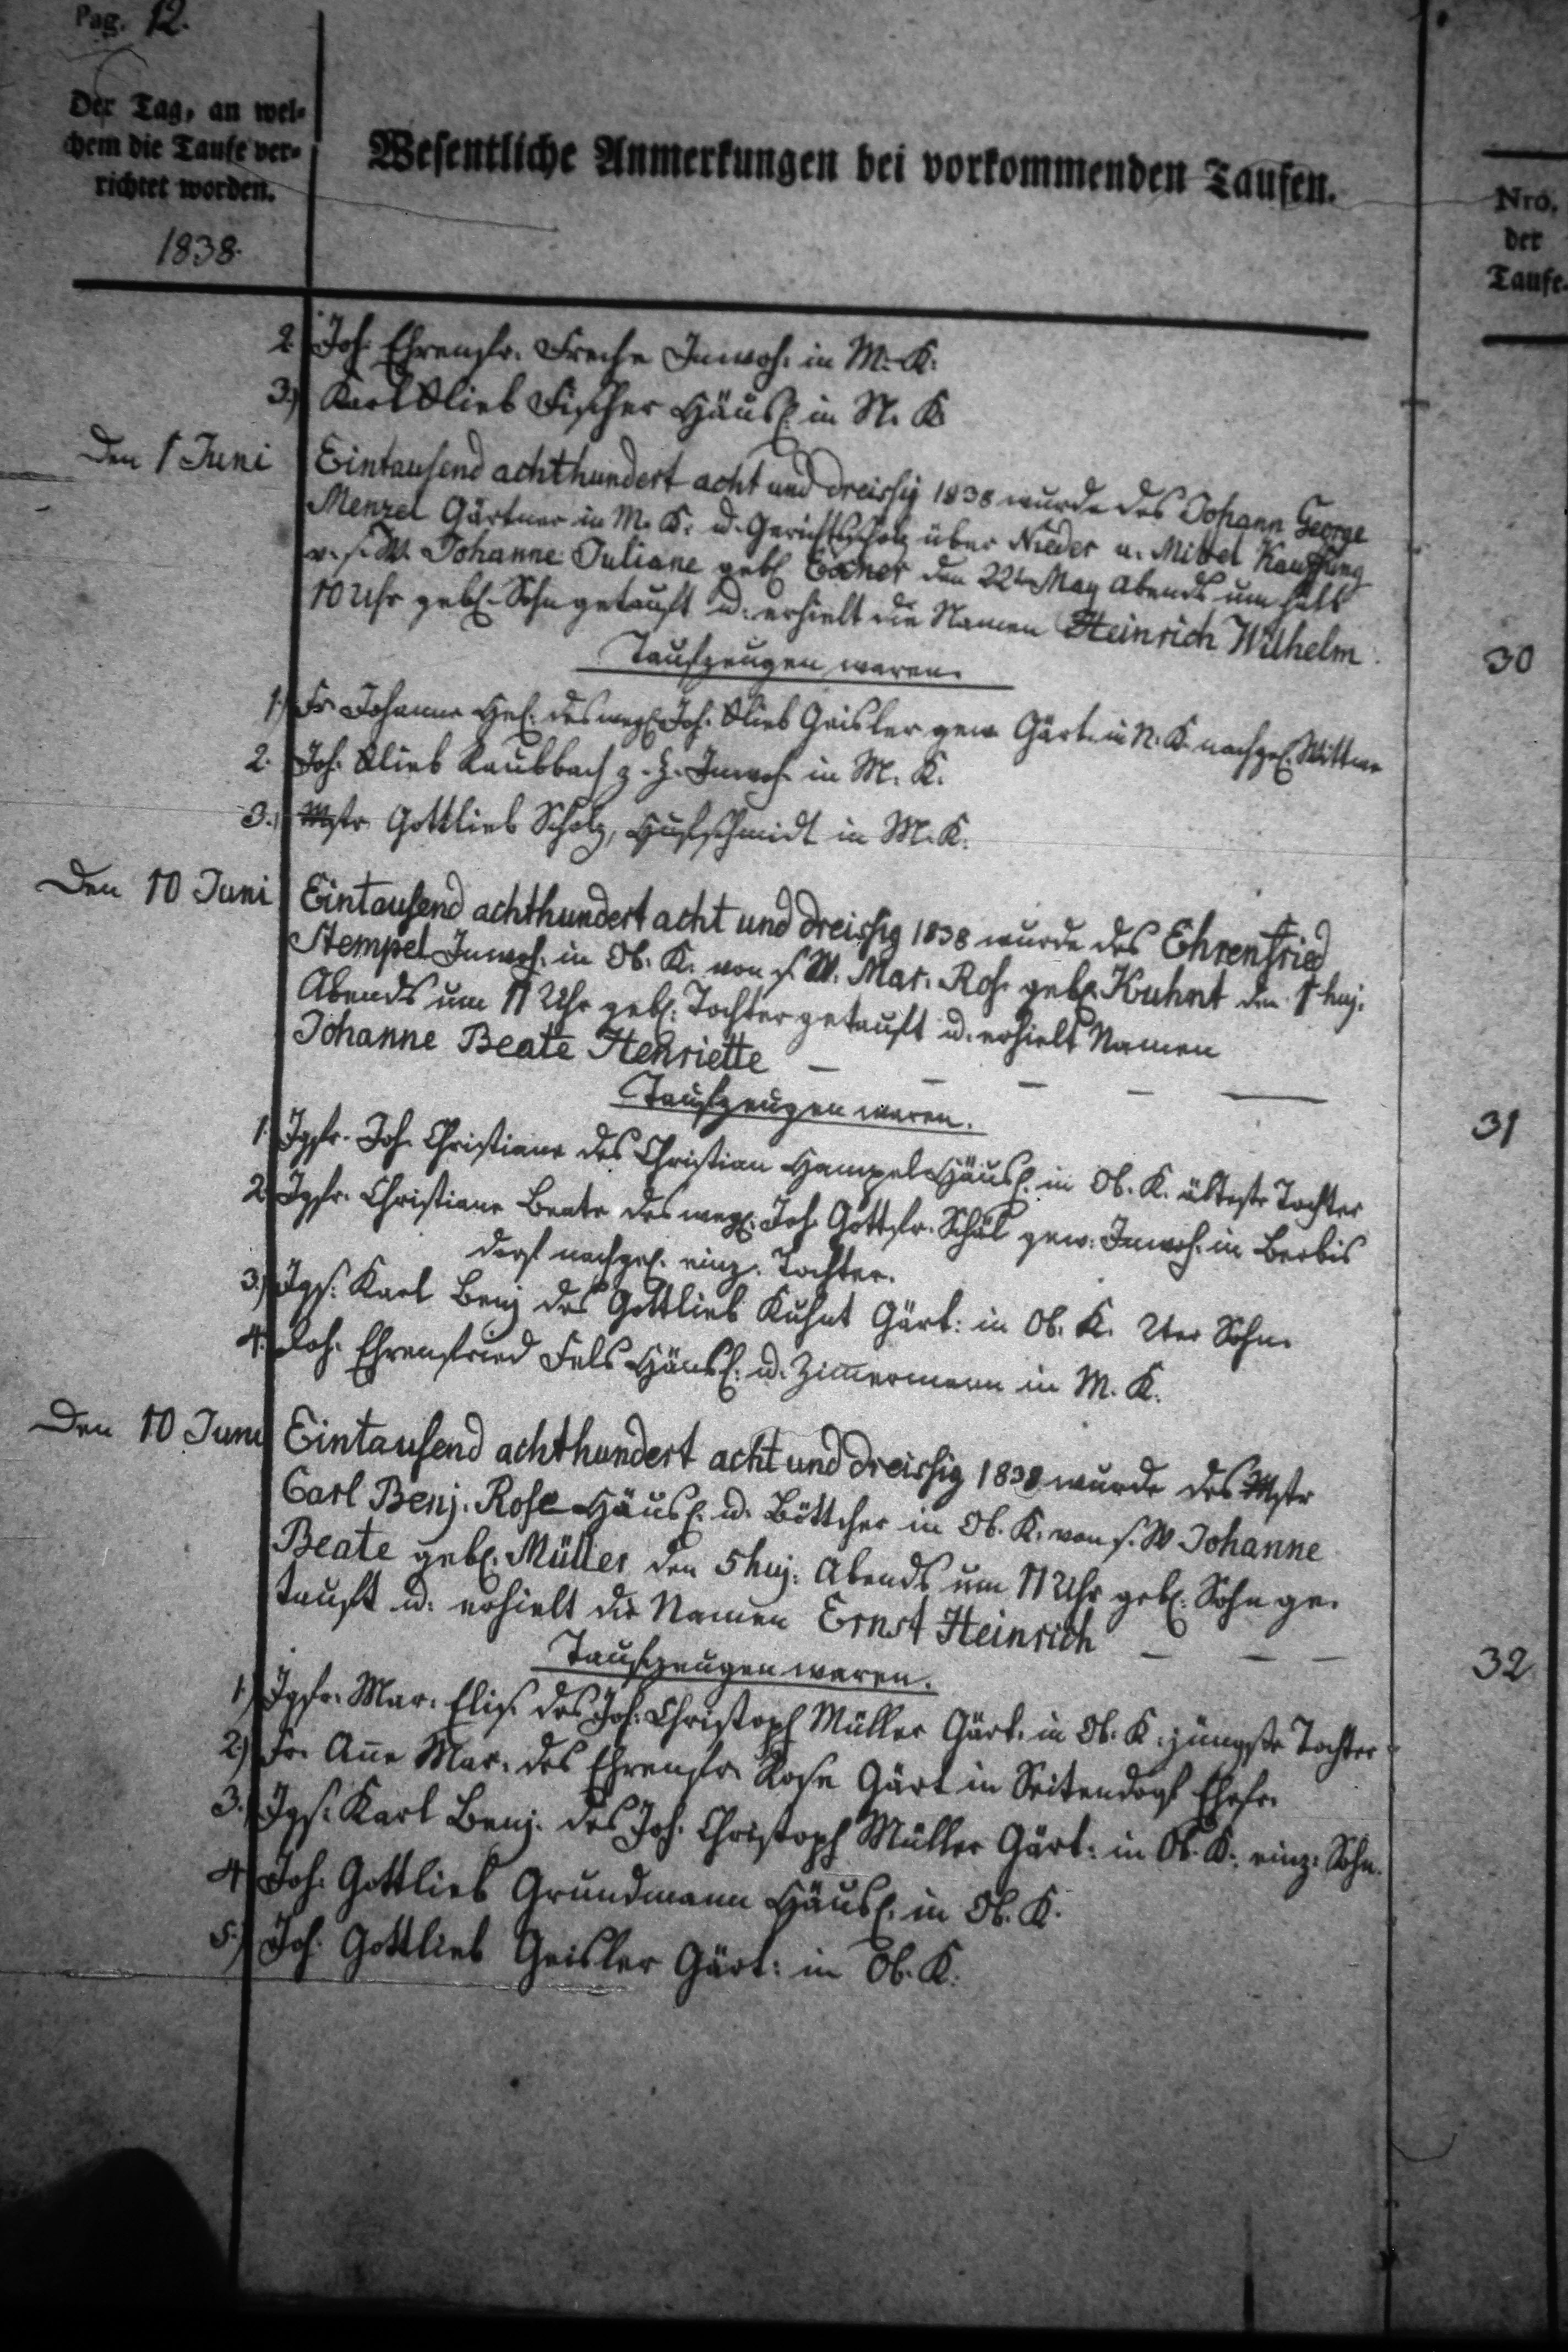 Pag. 12.
Der Tag, an wel-
chem die Taufe ver-
richtet worden.
1838.
Wesentliche Anmerkungen bei vorkommenden Taufen.
Nro.
der
Taufe.
2. Joh. Ehrenfr. Freche Inwoh. in M. K.
3.) Karl Glieb Fischer Häusl. in N. K.
Den 1 Juni Eintausend achthundert acht und dreissig 1838 wurde des Johann George
Menzel Gärtner in M. K. u. Gerichtsscholz über Nieder u. Mittel Kauffung
v. s. W. Johanne Juliane gebl. Exner den 22ten May Abends um halb
10 Uhr gebl. Sohn getauft u. erhielt die Namen Heinrich Wilhelm.
30
Taufzeugen waren.
1.) Fr. Johanne Hel. des wegl. Joh. Glieb Geisler gew. Gärt. in N. K. nachgel. Wittwe
2. Joh. Glieb Raubbach z. Z. Inwoh. in M. K.
3.) Mstr Gottlieb Scholz, Hufschmidt in M. K.
Den 10 Juni Eintausend achthundert acht und dreissig 1838 wurde des Ehrenfried
Stempel Inwoh. in Ob. K. von s. W. Mar. Ros. gebl. Kuhnt den 1 huj.
Abends um 11 Uhr gebl. Tochter getauft u. erhielt Namen
Johanne Beate Henriette
31
Taufzeugen waren.
1. Jgfr. Joh. Christiane des Christian Hampel Häusl. in Ob. K. älteste Tochter
2. Jgfr. Christiane Beate des wegl. Joh. Gottfr. Schäl gew. Inwoh. in Berbis
dorf nachgel. einz. Tochter.
3.) Jgs. Karl Benj des Gottlieb Kuhnt Gärt: in Ob. K. 2ter Sohn.
4. Joh. Ehrenfried Fels Häusl. u. Zimmermann in M. K.
Den 10. Juni Eintausend achthundert acht und dreissig 1838 wurde des Mstr
Carl Benj. Rose Häusl. u. Böttcher in Ob. K. von s. W Johanne
Beate gebl. Müller den 5 huj: Abends um 11 Uhr gebl. Sohn ge-
tauft u. erhielt die Namen Ernst Heinrich
32
Taufzeugen waren.
1.) Jgfr. Mar. Elis. des Joh. Christoph Müller Gärt. in Ob. K. jüngste Tochter
2.) Fr. Anne Mar. des Ehrenfr. Rose Gärt in Seitendorf Ehefr.
3.) Jgs. Karl Benj. des Joh. Christoph Müller Gärt: in Ob. K. einz: Sohn.
4. Joh. Gottlieb Grundmann Häusl. in Ob. K.
5.) Joh. Gottlieb Geisler Gärt: in Ob. K.